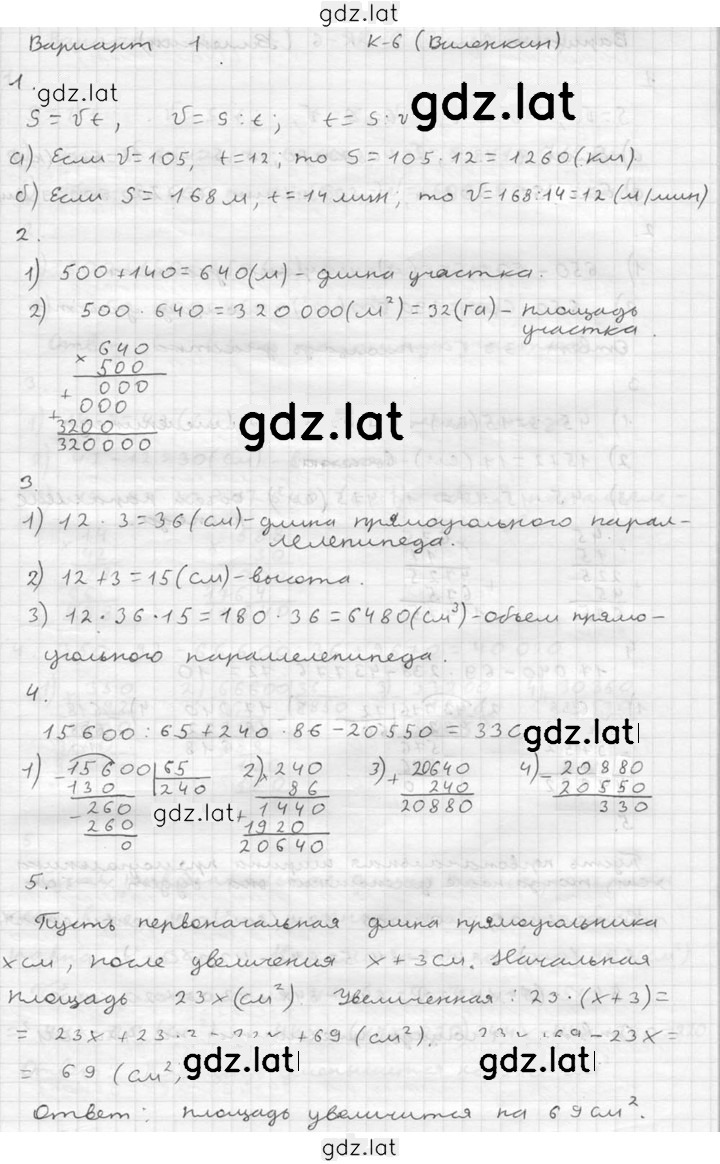 gdz.lat
Вариант 1 К-6 (Виленкин)
1.
gdz.lat
gdz.lat
S = vt, v = S : t; t = S : v
а) Если v = 105, t = 12; то S = 105 · 12 = 1260 (км)
б) Если S = 168 м, t = 14 мин; то v = 168 : 14 = 12 (м/мин)
2.
1) 500 + 140 = 640 (м) - длина участка.
2) 500 · 640 = 320 000 (м²) = 32 (га) - площадь
участка.
× 640
500
+ 000
+ 000
3200
320000
gdz.lat
3
1) 12 · 3 = 36 (см) - длина прямоугольного парал-
лелепипеда.
2) 12 + 3 = 15 (см) - высота.
3) 12 · 36 · 15 = 180 · 36 = 6480 (см³) - объем прямо-
угольного параллелепипеда.
4.
15600 : 65 + 240 · 86 - 20550 = 330
gdz.lat
1) - 15600 | 65 2) × 240 3) + 20640 4) - 20880
130 240 86 240 20550
- 260 + 1440 20880 330
260 1920
0 20640
gdz.lat
5.
Пусть первоначальная длина прямоугольника
x см, после увеличения x + 3 см. Начальная
площадь 23x (см²). Увеличенная: 23 · (x + 3) =
= 23x + 23 · 3 = 23x + 69 (см²). 23x + 69 - 23x =
= 69 (см²)
gdz.lat
gdz.lat
Ответ: площадь увеличится на 69 см².
gdz.lat